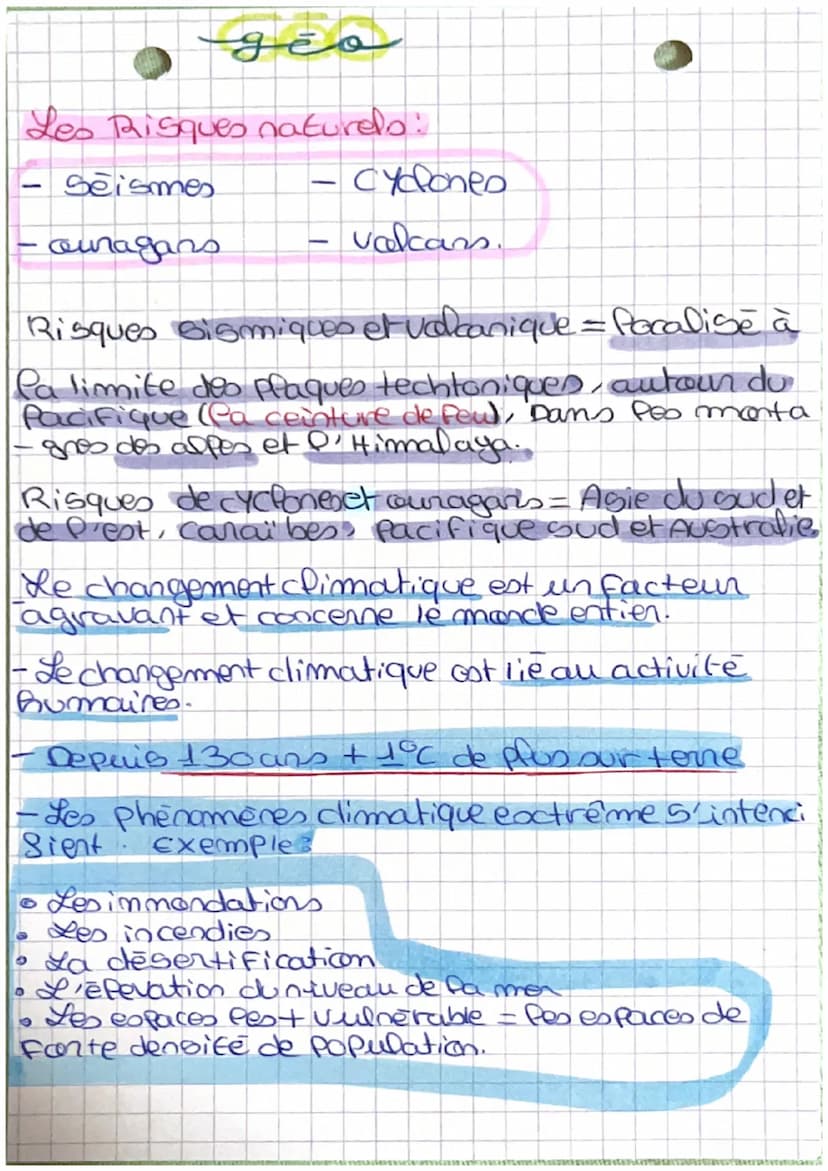 géo
Les Risques naturels :
- Séismes - Cyclones
- ouragans - Volcans.
Risques sismiques et volcanique = localisé à
la limite des plaques techtoniques, autour du
Pacifique (la ceinture de feu), Dans les monta
- gnes des alpes et l'Himmalaya.
Risques de cyclones et ouragans = Asie du sud et
de l'est, Caraïbes, Pacifique sud et Australie
Le changement climatique est un facteur
agravant et concerne le monde entier.
- Le changement climatique est lié au activité
humaines.
- Depuis 130 ans + 1°C de plus sur terre
- Les phénomènes climatique extrême s'intenci
sient. Exemple :
• Les immondations
• Les incendies
• La désertification
• L'élévation du niveau de la mer
• Les espaces les + vulnérable = les espaces de
forte densité de population.